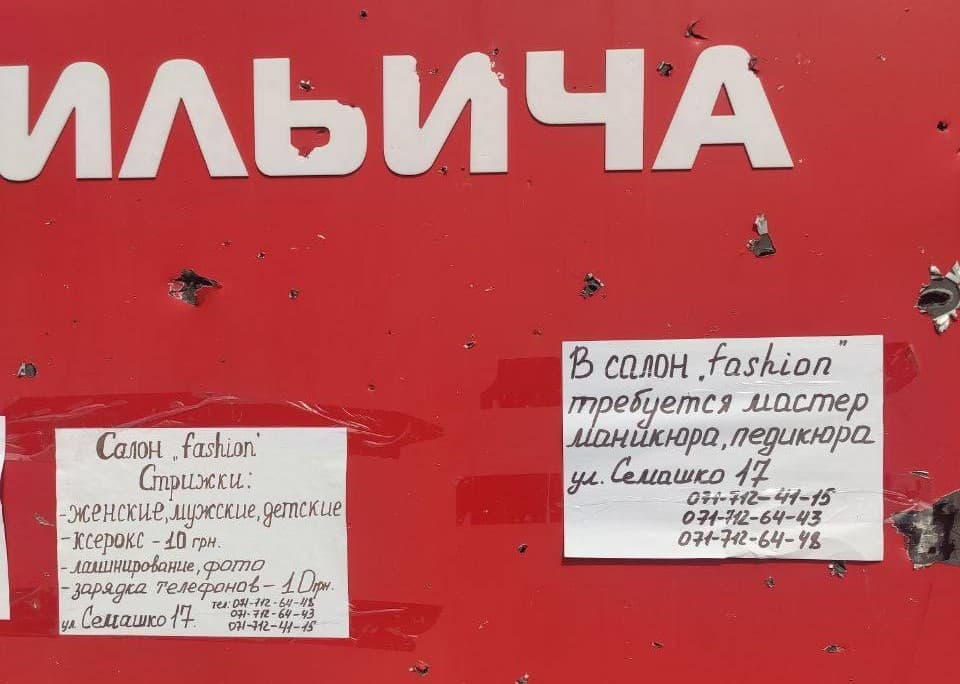 ИЛЬИЧА
Салон „fashion"
Стрижки:
-женские, мужские, детские
-ксерокс - 10 грн.
-ламинирование, фото
-зарядка телефонов - 10 грн.
ул. Семашко 17. тел: 071-712-64-48
071-712-64-43
071-712-41-15
В салон „fashion"
требуется мастер
маникюра, педикюра
ул. Семашко 17
071-712-41-15
071-712-64-43
071-712-64-48